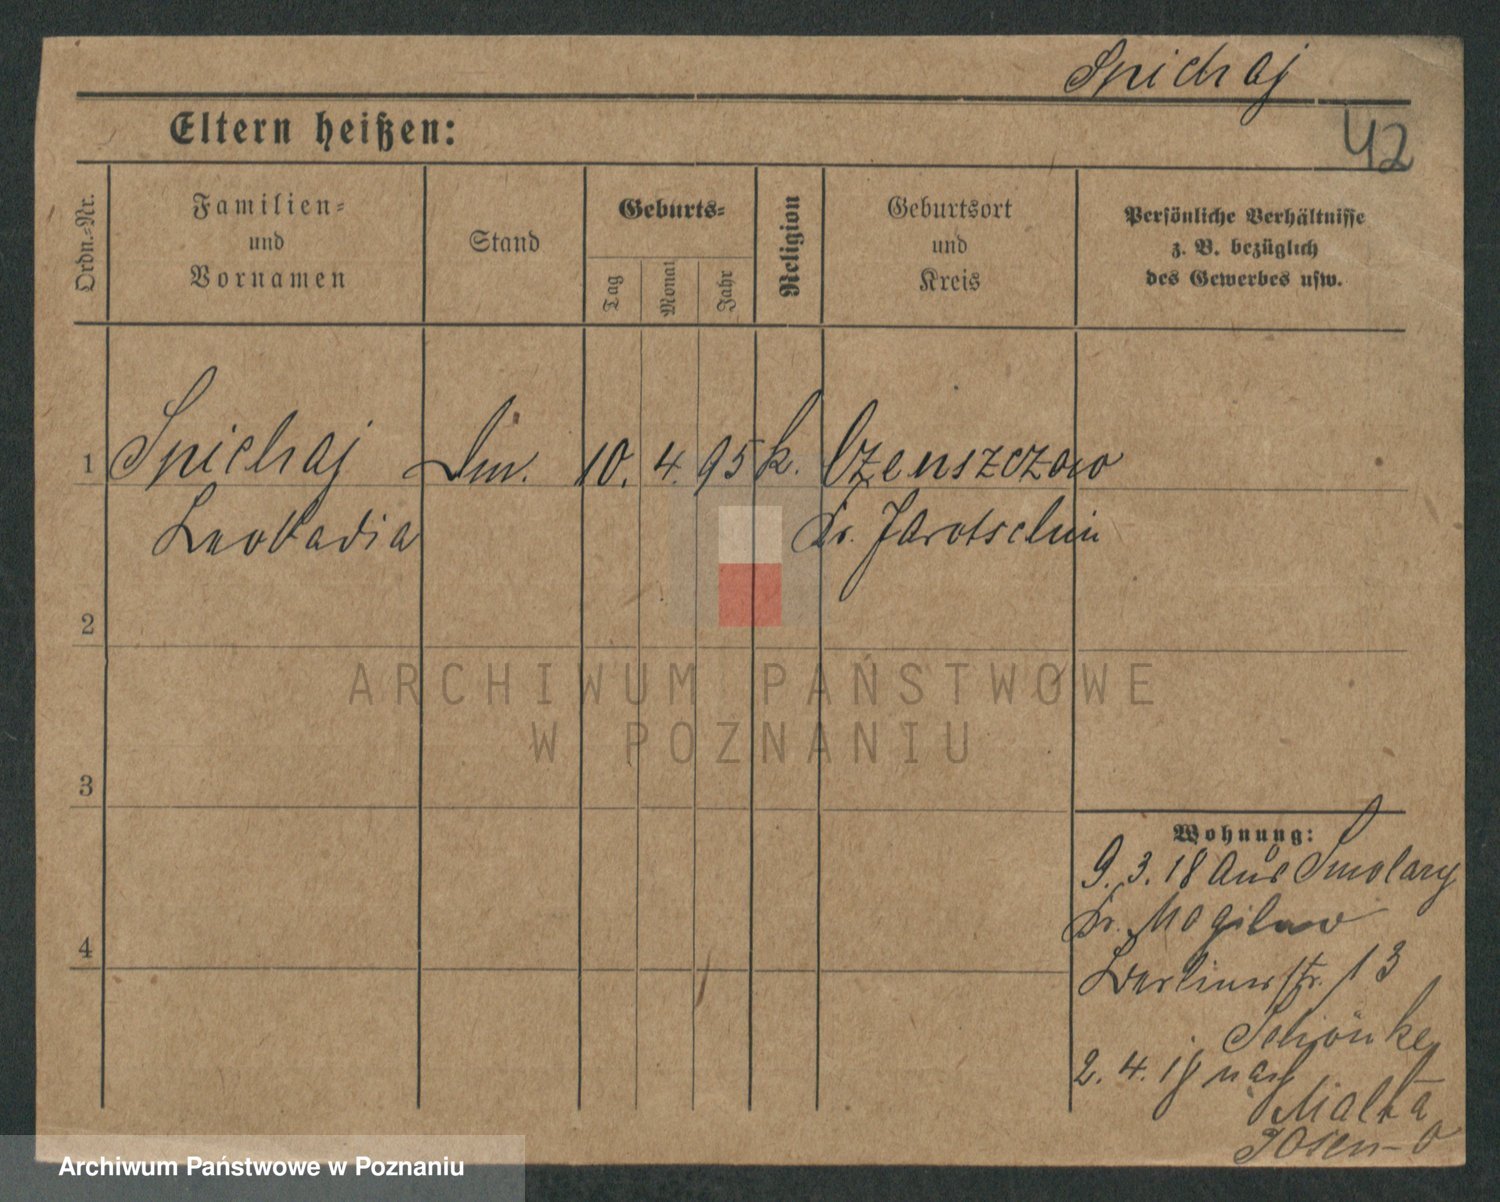 Spichaj
42
Eltern heißen:
Ordn.-Nr.
Familien-
und
Vornamen
Stand
Geburts-
Tag
Monat
Jahr
Religion
Geburtsort
und
Kreis
Persönliche Verhältnisse
z. B. bezüglich
des Gewerbes usw.
1 Spichaj 10. 4. 95 k.
Leokadia Kr. Jarotschin
2
3
4
Wohnung:
9. 3. 18 aus Smolary
Kr. Mogilno
Berlinerstr. 13
Schönke
2. 4. 18 nach
Malta
Posen-O
ARCHIWUM PAŃSTWOWE
W POZNANIU
Archiwum Państwowe w Poznaniu